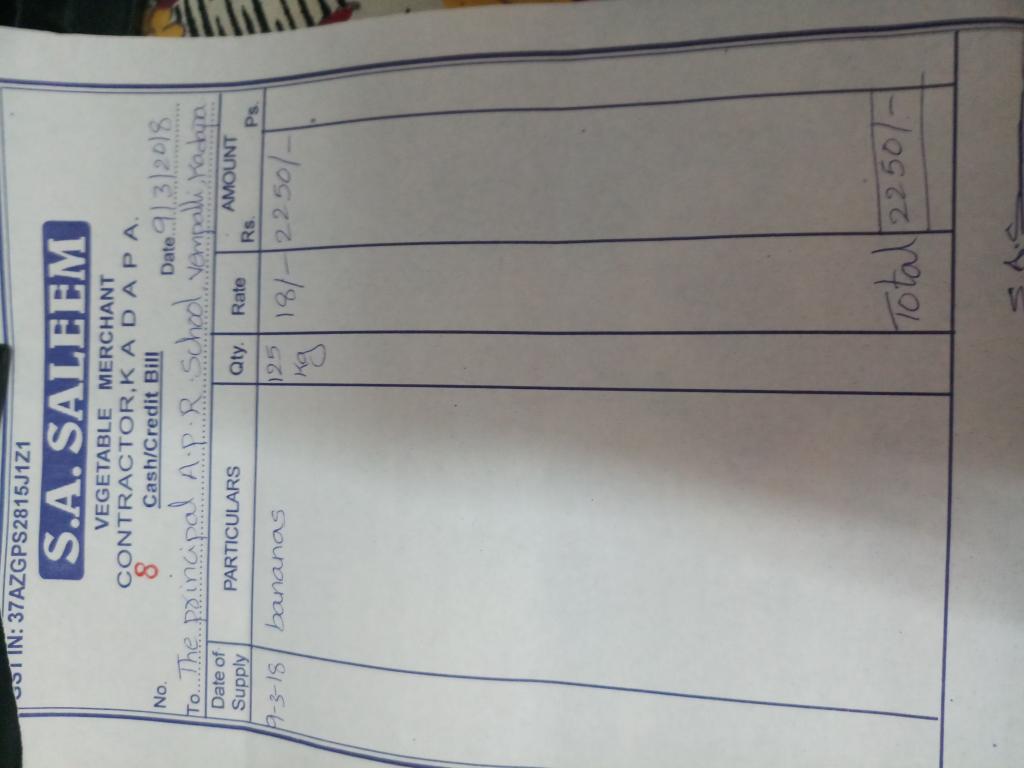 GSTIN: 37AZGPS2815J1Z1
S.A. SALEEM
VEGETABLE MERCHANT
CONTRACTOR, K A D A P A.
8 Cash/Credit Bill
No. Date 9/3/2018
To The principal A.P.R. School Vempalli, Kadapa
Date of Supply PARTICULARS Qty. Rate AMOUNT Rs. Ps.
9-3-18 bananas 125 kg 18/- 2250/-
Total 2250/-